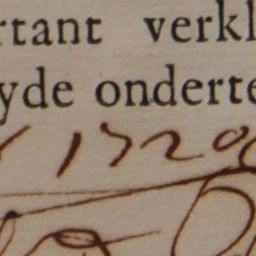 rtant verkl
yde onderte
1720